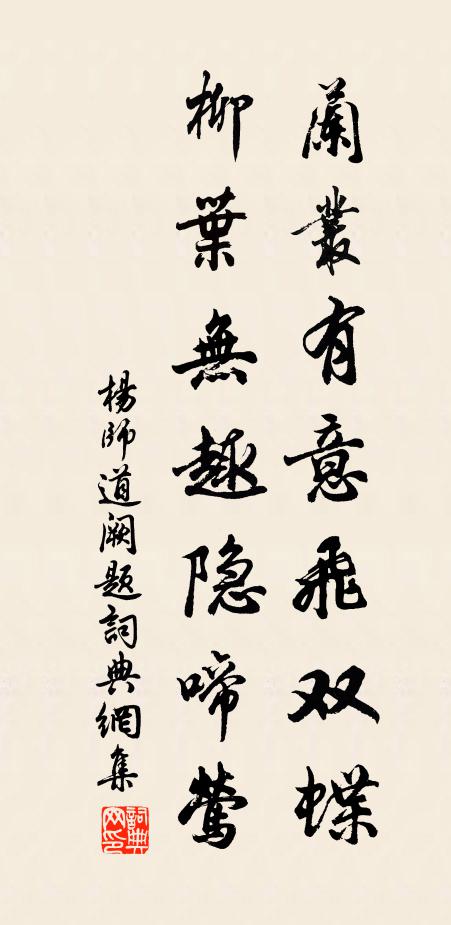 蘭叢有意飛双蝶
柳葉無趣隐啼鶯
楊師道阙题詞典網集
詞典网印